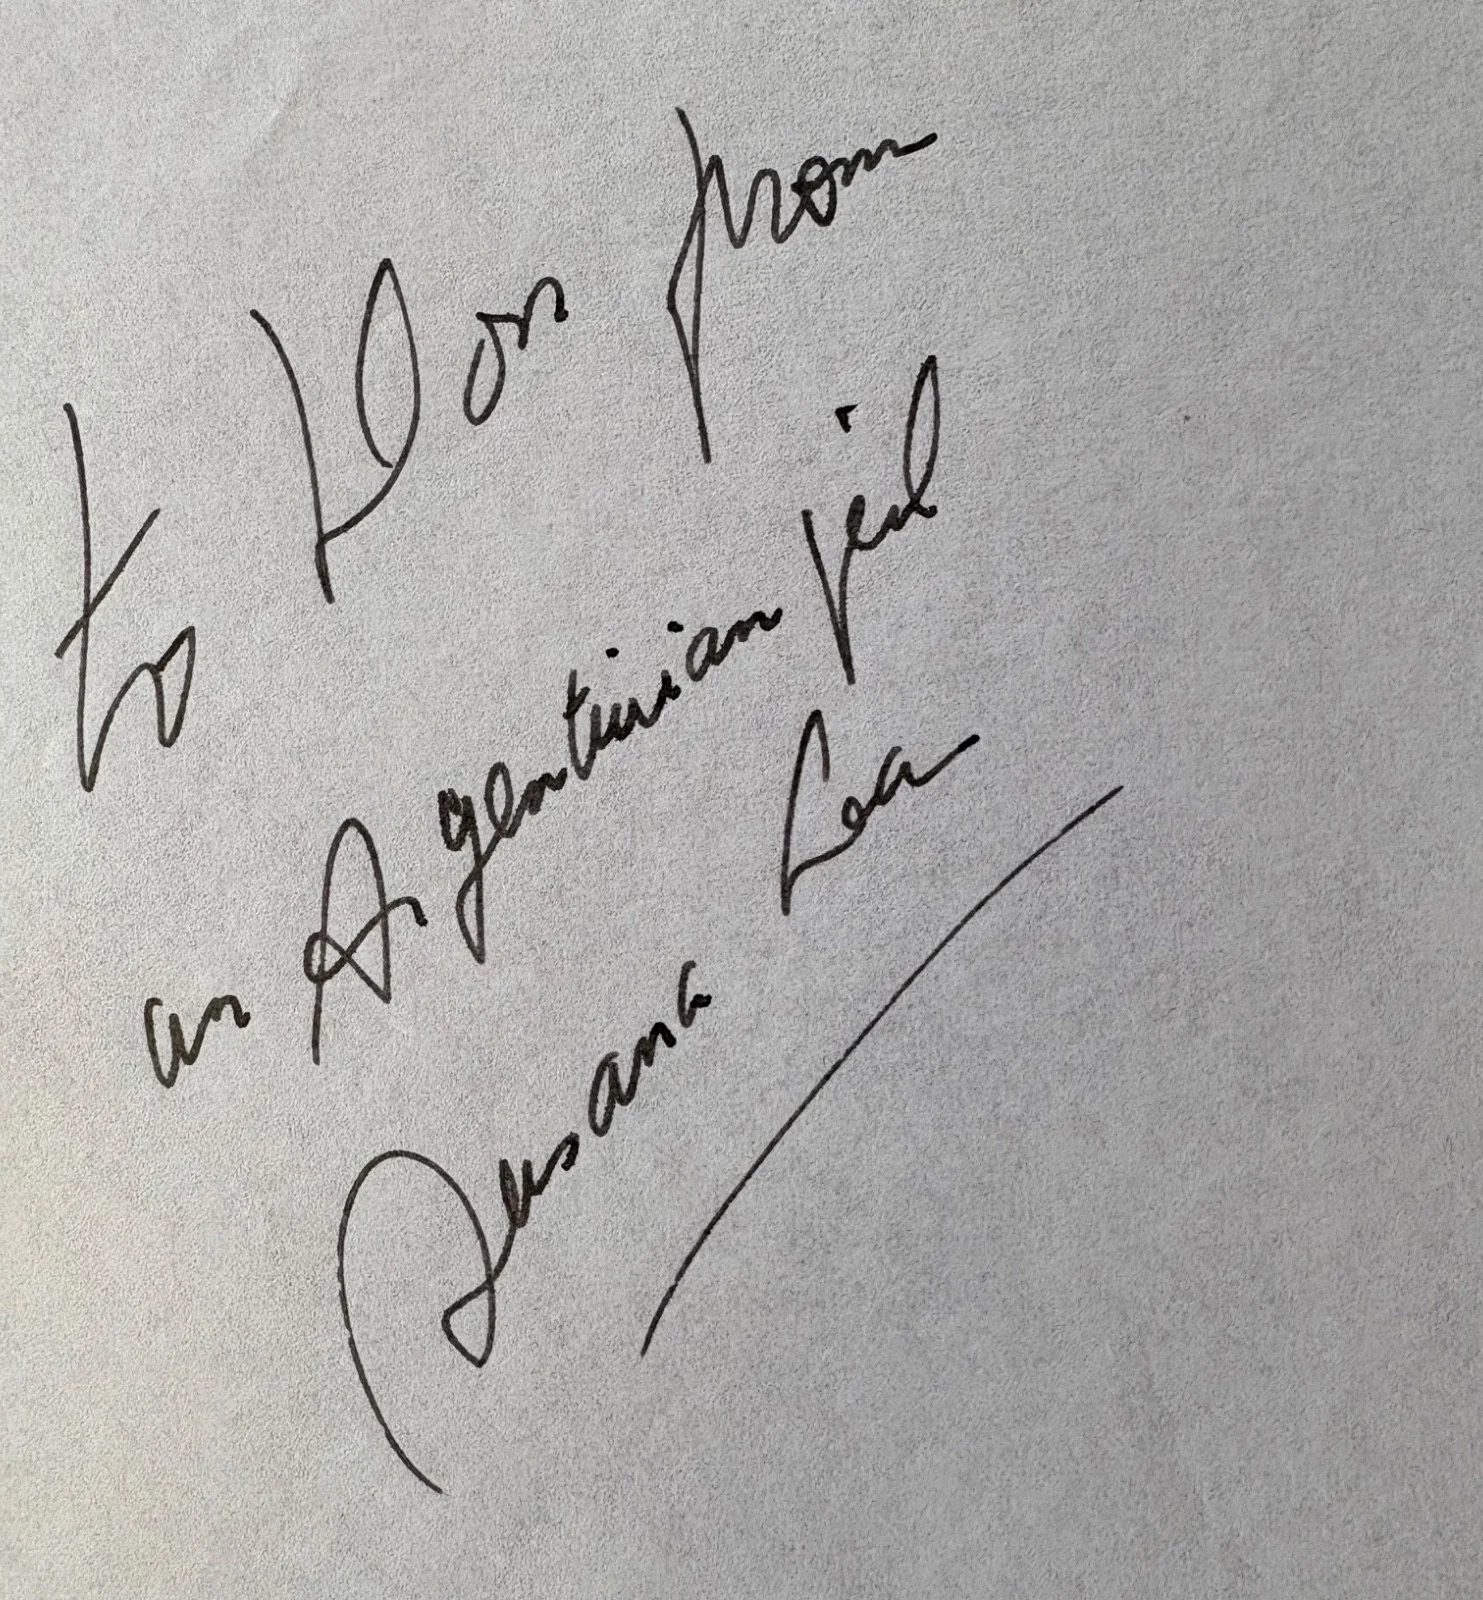 to Don from
an Argentinian girl
Susana Lea